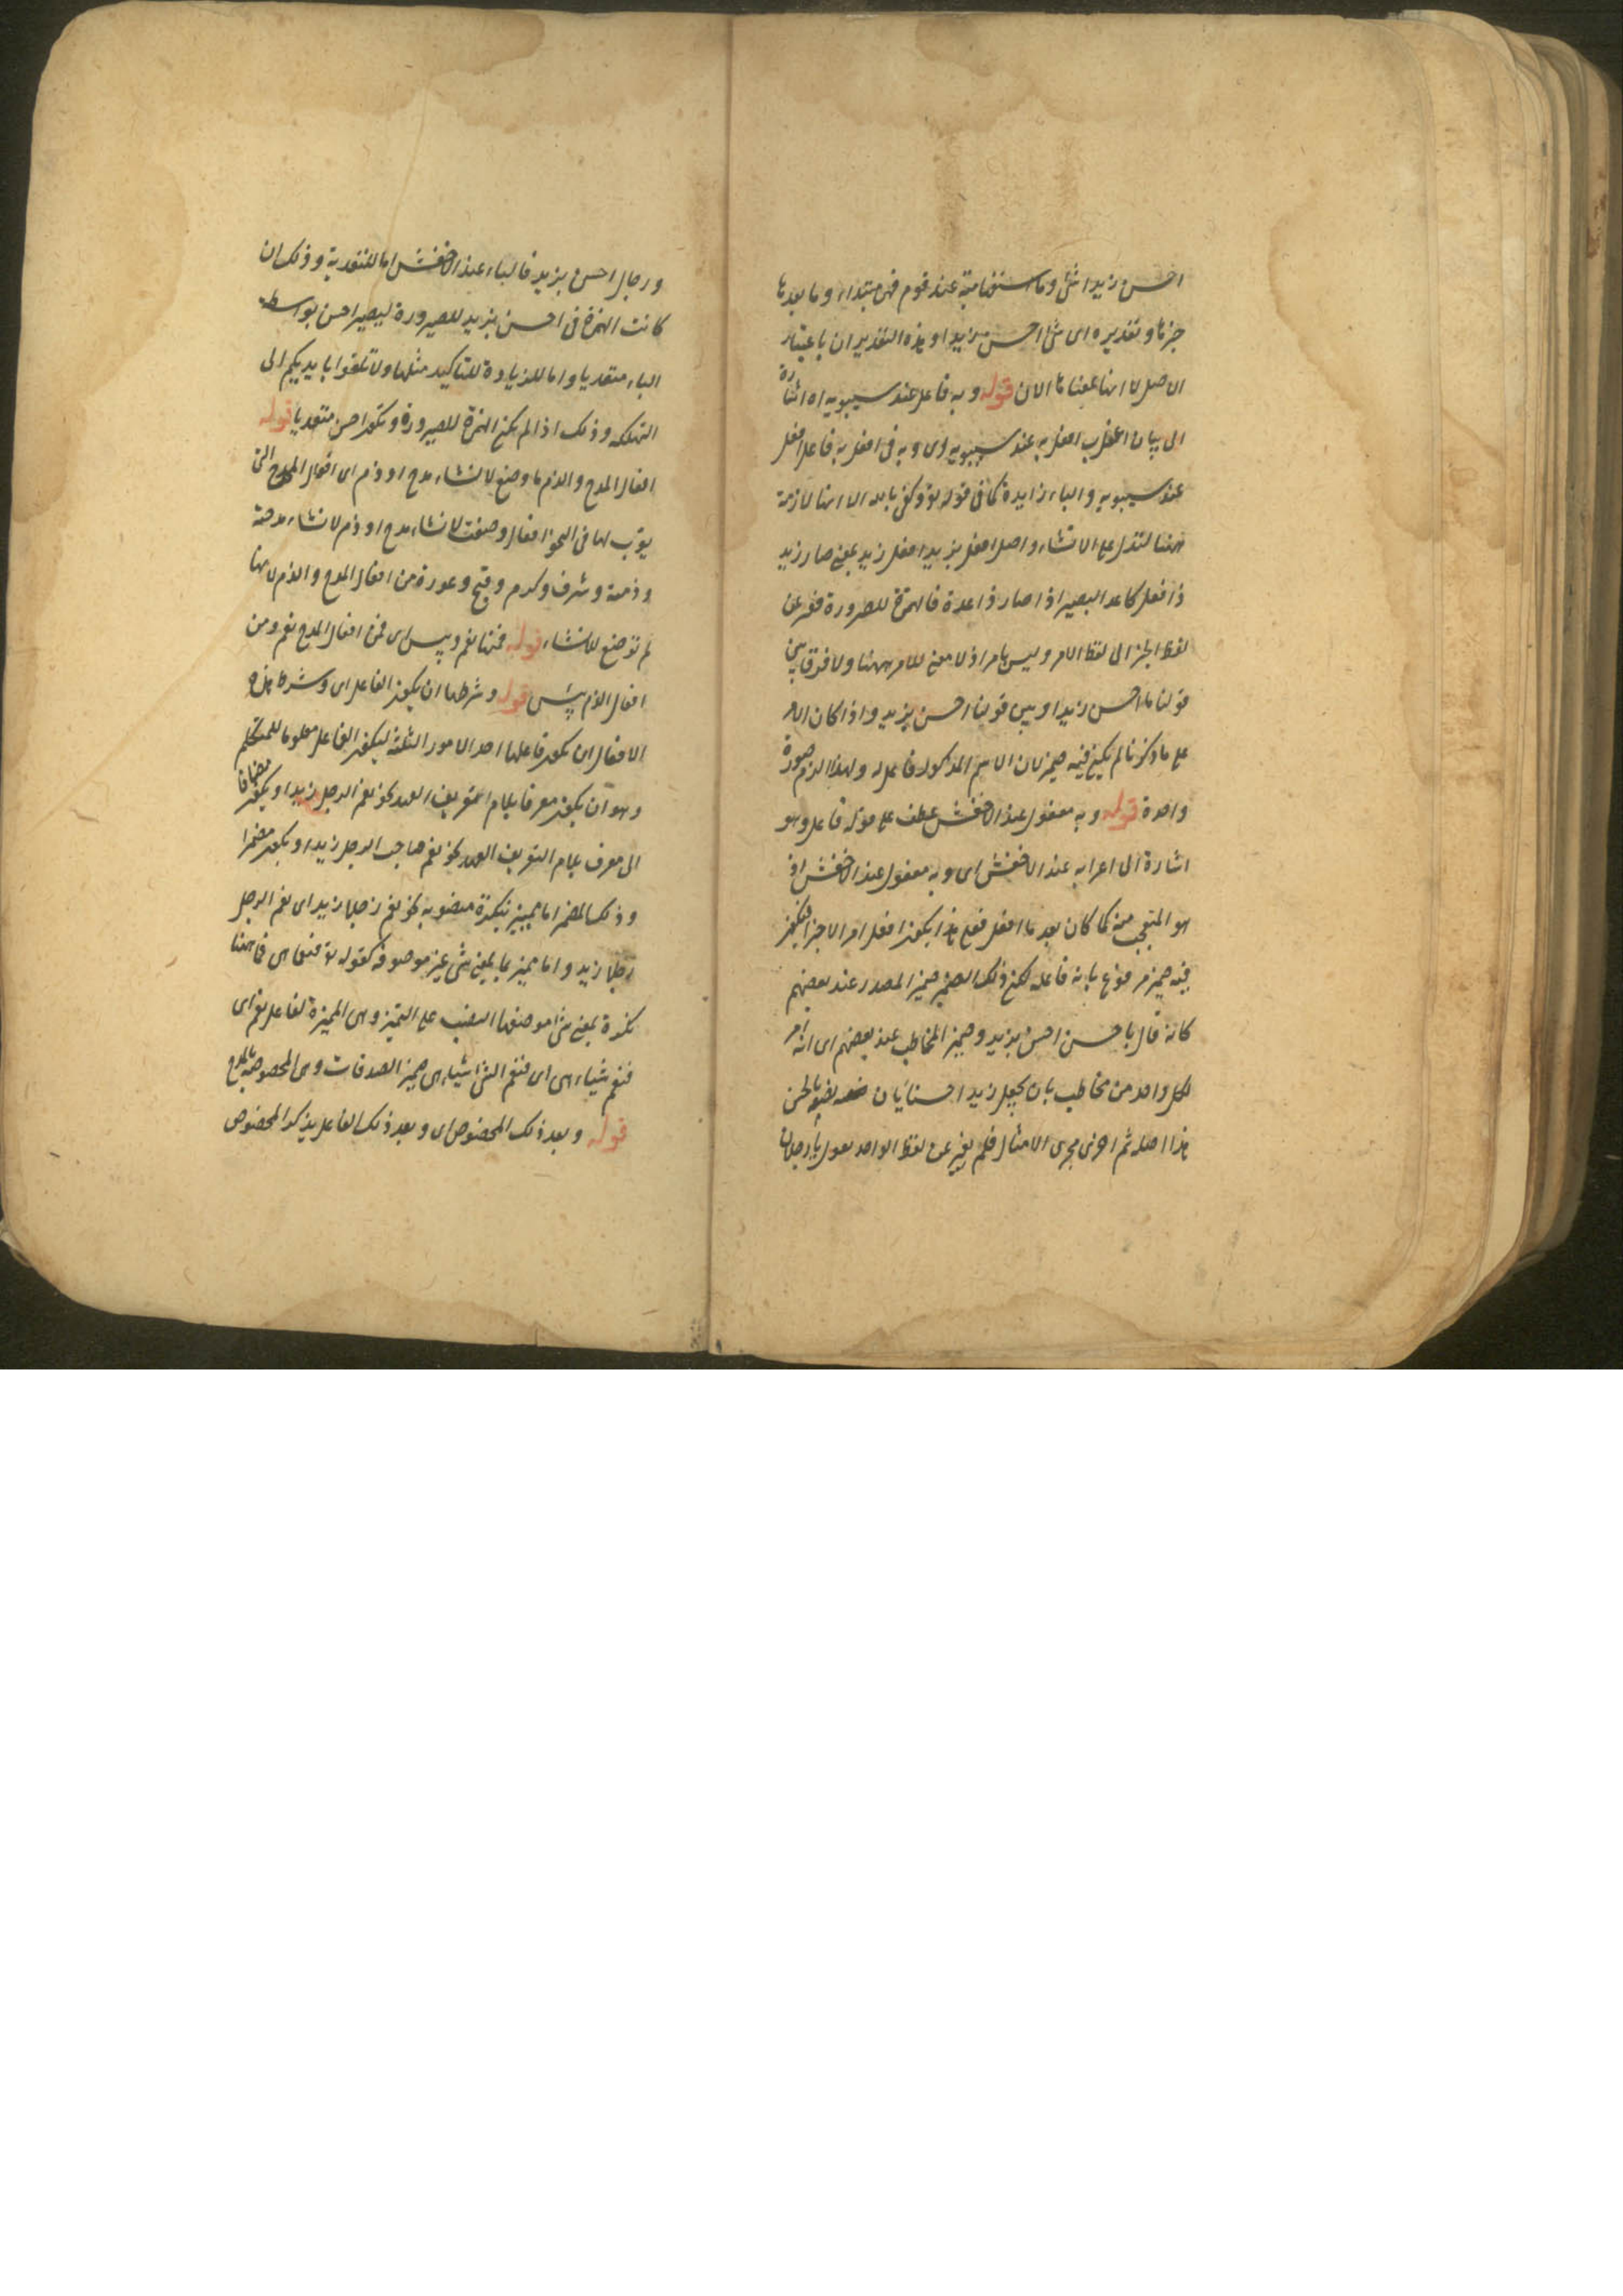 احسن زيدا شئ وما استفهامية عند قوم فهى مبتداء وما بعدها
خبرها وتقديره اى شئ احسن زيدا وهذه التقديران باعتبار
الاصل لا انها بمعناها الان قوله وبه فاعل عند سيبويه اه اشارة
الى بيان اعراب افعل به عند سيبويه اى وبه فى افعل به فاعل افعل
عند سيبويه والباء زايدة كما فى قوله تع وكفى بالله الا انها لازمة
ههنا لتدل على الانشاء واصل افعل بزيد افعل زيد بمعنى صار زيد
ذا فعل كاغد البعير اذا صار ذا غدة فالهمزة للصيرورة فغير عن
لفظ الخبر الى لفظ الامر وليس بامر اذ لا معنى للامر ههنا ولا فرق بين
قولنا ما احسن زيدا وبين قولنا احسن بزيد واذا كان الامر
على ما ذكرنا لم يكن فيه ضمير لان الاسم المذكور فاعله ولهذا الزم صورة
واحدة قوله وبه مفعول عند الاخفش عطف على قوله فاعل وهو
اشارة الى اعرابه عند الاخفش اى وبه مفعول عند الاخفش اذ
هو المتعجب منه كما كان بعد ما افعل فعلى هذا يكون افعل امر الاخبرا فيكون
فيه ضمير مرفوع بانه فاعله لكن ذلك الضمير ضمير المصدر عند بعضهم
كانه قال يا حسن احسن بزيد وضمير المخاطب عند بعضهم اى انه امر
لكل واحد من مخاطب بان يجعل زيدا حسنا بان يصفه بالحسن
هذا اصله ثم اجرى مجرى الامثال فلم يغير عن لفظ الواحد تقول يا رجلان
ورجال احسن بزيد فالباء عند الاخفش اما للتعدية وذلك ان
كانت الهمزة فى احسن بزيد للصيرورة ليصير احسن بواسطة
الباء متعديا واما للزيادة للتاكيد مثلها ولا تلقوا بايديكم الى
التهلكة وذلك اذا لم يكن الهمزة للصيرورة ويكون احسن متعديا قوله
افعال المدح والذم ما وضع لانشاء مدح او ذم اى افعال المدح التى
يوّب لها فى النحو افعال وضعت لانشاء مدح او ذم لانشاء مدحته
وذممته وشرف وكرم وقبح وعور من افعال المدح والذم لانها
لم توضع للانشاء قوله فمنها نعم وبئس اى فمن افعال المدح نعم ومن
افعال الذم بئس قوله وشرطها ان يكون الفاعل اى وشرط هذه
الافعال ان يكون فاعلها احد الامور الثلثة ليكون الفاعل معلوما للمتكلم
وهو ان يكون معرفا بلام التعريف العهد نحو نعم الرجل زيد او يكون مضافا
الى معرف بلام التعريف العهد نحو نعم صاحب الرجل زيد او يكون مضمرا
وذلك المضمر اما مميز بنكرة منصوبة نحو نعم رجلا زيد اى نعم الرجل
رجلا زيد واما مميز بما بمعنى شئ غير موصوفة كقوله تع فنعما هى فما ههنا
نكرة بمعنى شئ موضعها النصب على التميز وهى المميزة لفاعل نعم اى
فنعم شياء هى اى فنعم الشئ شياء هى ضمير الصدقات وهى المخصوصة بالمدح
قوله وبعد ذلك المخصوص اى وبعد ذلك الفاعل يذكر المخصوص